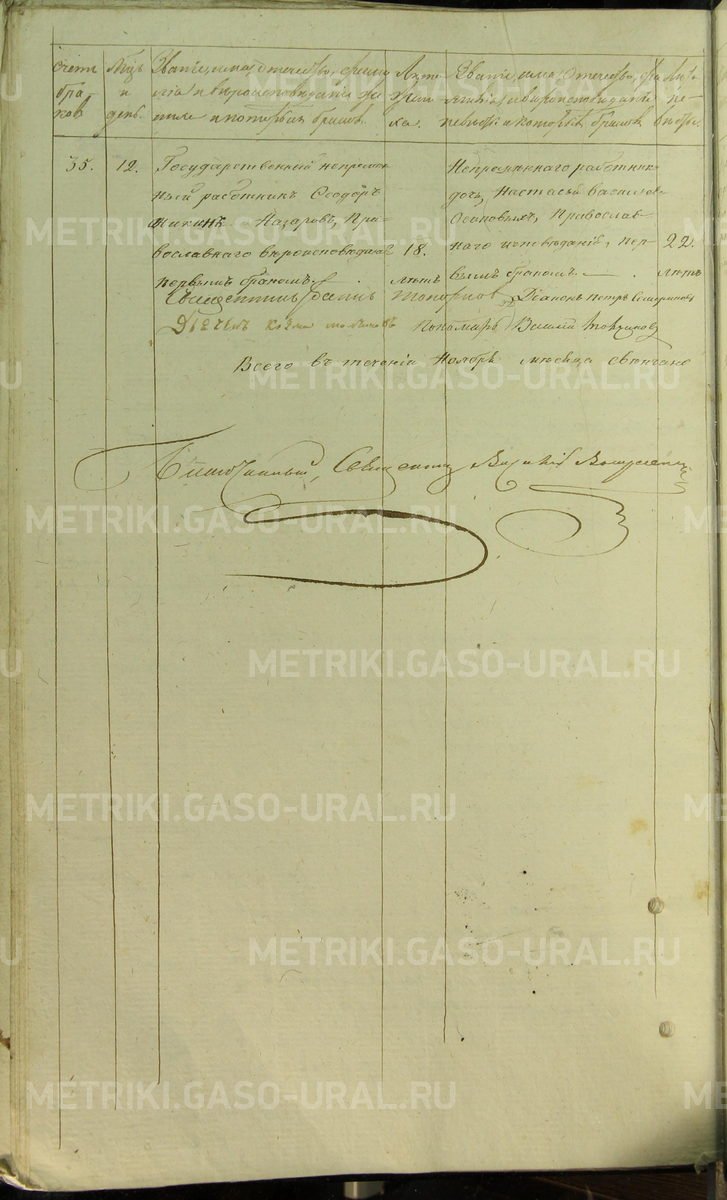 Счетъ бра-ковъ
Мцъ и день.
Званіе, имя, отечество, фами-
лія и вѣроисповѣданіе же-
ниха и которымъ бракомъ.
Лѣта жени-ха.
Званіе, имя, отечество, фа-
милія, и вѣроисповѣданіе
невѣсты и которымъ бракомъ
Лѣта не-вѣсты.
35. 12.
Государственный непремѣн-
ный работникъ Ѳеодоръ
Назаровъ, Пра-
вославнаго вѣроисповѣданія
первымъ бракомъ.
18.
лѣтъ
Непремѣннаго работника
дочь, Настасья Василье-
Осиповыхъ, Православ-
наго исповѣданія, пер-
вымъ бракомъ.
22.
лѣтъ
Священникъ Топорковъ Діаконъ Петръ
Дьячекъ Козма Пономарь Василій
Всего въ теченіи Ноября мѣсяца свѣнчано
Благочинный, Священникъ
METRIKI.GASO-URAL.RU